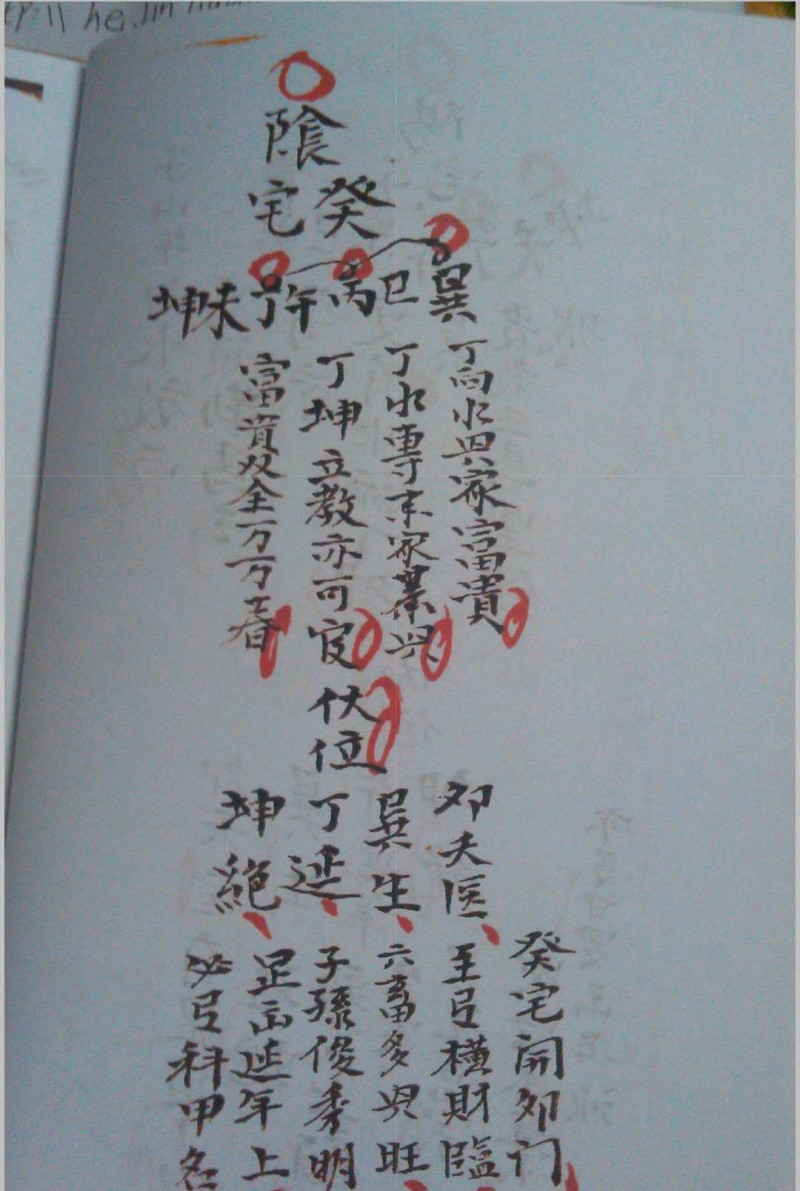 陰
宅癸
坤未丁午丙巳巽
丁向水具家富貴
丁水專來家業兴
丁坤立教亦可官
富貴双全一万万春
伏位
卯天医
巽生
丁延
坤絕
癸宅開卯门
至弓橫財臨
六畜多兴旺
子孫俊秀明
足面延年上
必弓科甲名